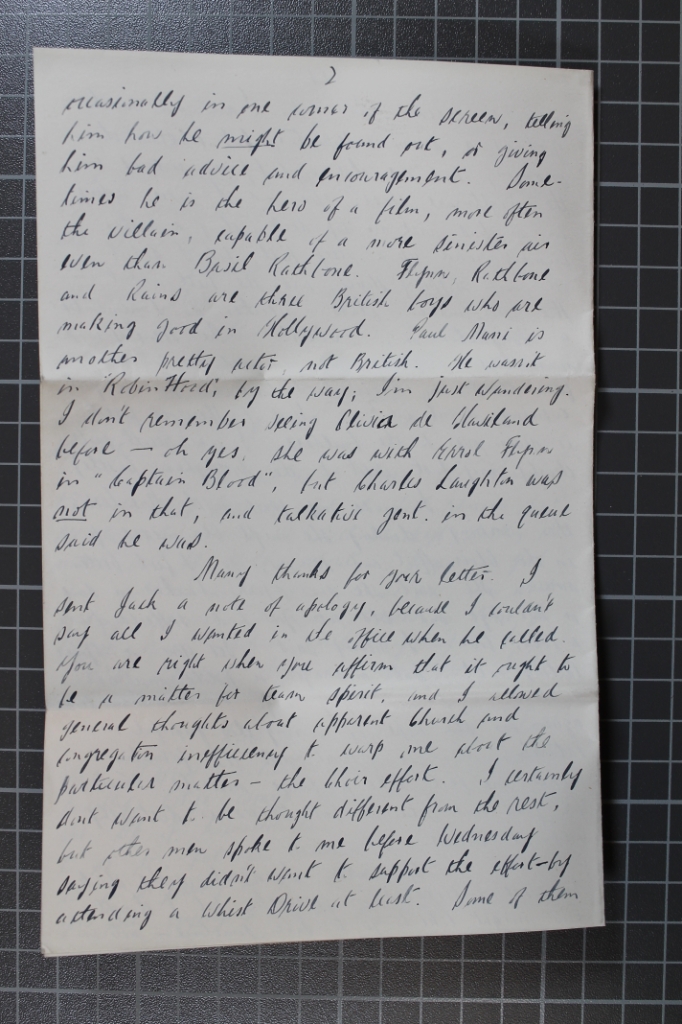 2
occasionally in one corner of the screen, telling
him how he might be found out, or giving
him bad advice and encouragement. Some-
times he is the hero of a film, more often
the villain, capable of a more sinister air
even than Basil Rathbone. Flynn, Rathbone
and Rains are three British boys who are
making good in Hollywood. Paul Muni is
another pretty actor, not British. He wasn't
in 'Robin Hood', by the way; I'm just wandering.
I don't remember seeing Olivia de Haviland
before — oh yes, she was with Errol Flynn
in "Captain Blood", but Charles Laughton was
not in that, and talkative gent. in the queue
said he was.
Many thanks for your letter. I
sent Jack a note of apology, because I couldn't
say all I wanted in the office when he called.
You are right when you affirm that it ought to
be a matter for team spirit, and I allowed
general thoughts about apparent Church and
congregation inefficiency to warp me about the
particular matter — the Choir effort. I certainly
dont want to be thought different from the rest,
but other men spoke to me before Wednesday
saying they didn't want to support the effort – by
attending a Whist Drive at least. Some of them